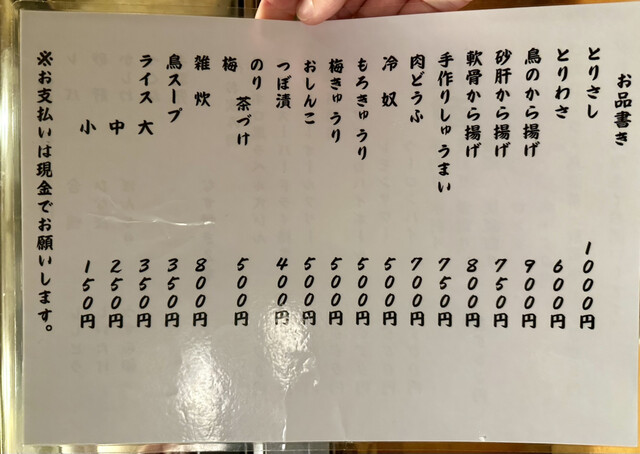 お品書き
とりさし 1000円
とりわさ 600円
鳥のから揚げ 900円
砂肝から揚げ 750円
軟骨から揚げ 800円
手作りしゅうまい 750円
肉どうふ 700円
冷奴 500円
もろきゅうり 500円
梅きゅうり 500円
おしんこ 500円
つぼ漬 400円
のり
梅 茶づけ 500円
雑炊 800円
鳥スープ 350円
ライス 大 350円
中 250円
小 150円
※お支払いは現金でお願いします。